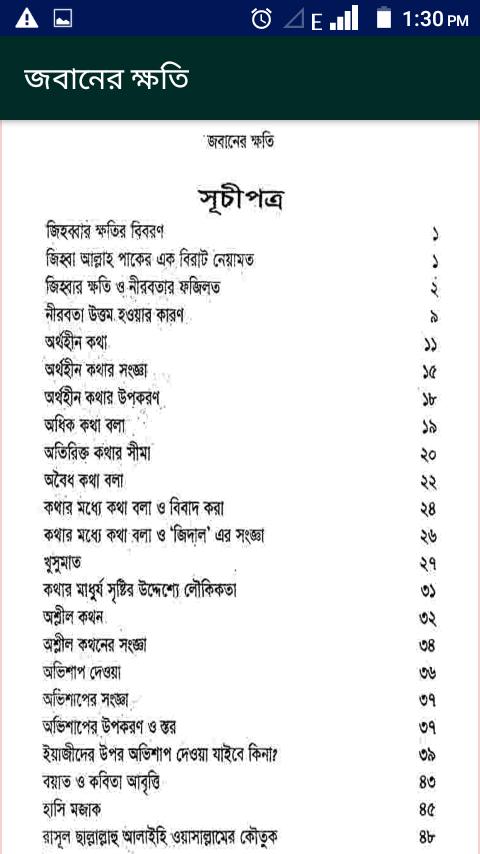 E 1:30 PM
জবানের ক্ষতি
জবানের ক্ষতি
সূচীপত্র
জিহব্বার ক্ষতির বিবরণ ১
জিহ্বা আল্লাহ পাকের এক বিরাট নেয়ামত ১
জিহ্বার ক্ষতি ও নীরবতার ফজিলত ২
নীরবতা উত্তম হওয়ার কারণ ৯
অর্থহীন কথা ১১
অর্থহীন কথার সংজ্ঞা ১৫
অর্থহীন কথার উপকরণ ১৮
অধিক কথা বলা ১৯
অতিরিক্ত কথার সীমা ২০
অবৈধ কথা বলা ২২
কথার মধ্যে কথা বলা ও বিবাদ করা ২৪
কথার মধ্যে কথা বলা ও ‘জিদাল’ এর সংজ্ঞা ২৬
খুসুমাত ২৭
কথার মাধুর্য সৃষ্টির উদ্দেশ্যে লৌকিকতা ৩১
অশ্লীল কথন ৩২
অশ্লীল কথনের সংজ্ঞা ৩৪
অভিশাপ দেওয়া ৩৬
অভিশাপের সংজ্ঞা ৩৭
অভিশাপের উপকরণ ও স্তর ৩৭
ইয়াজীদের উপর অভিশাপ দেওয়া যাইবে কিনা? ৩৯
বয়াত ও কবিতা আবৃত্তি ৪৩
হাসি মজাক ৪৫
রাসূল ছাল্লাল্লাহু আলাইহি ওয়াসাল্লামের কৌতুক ৪৮